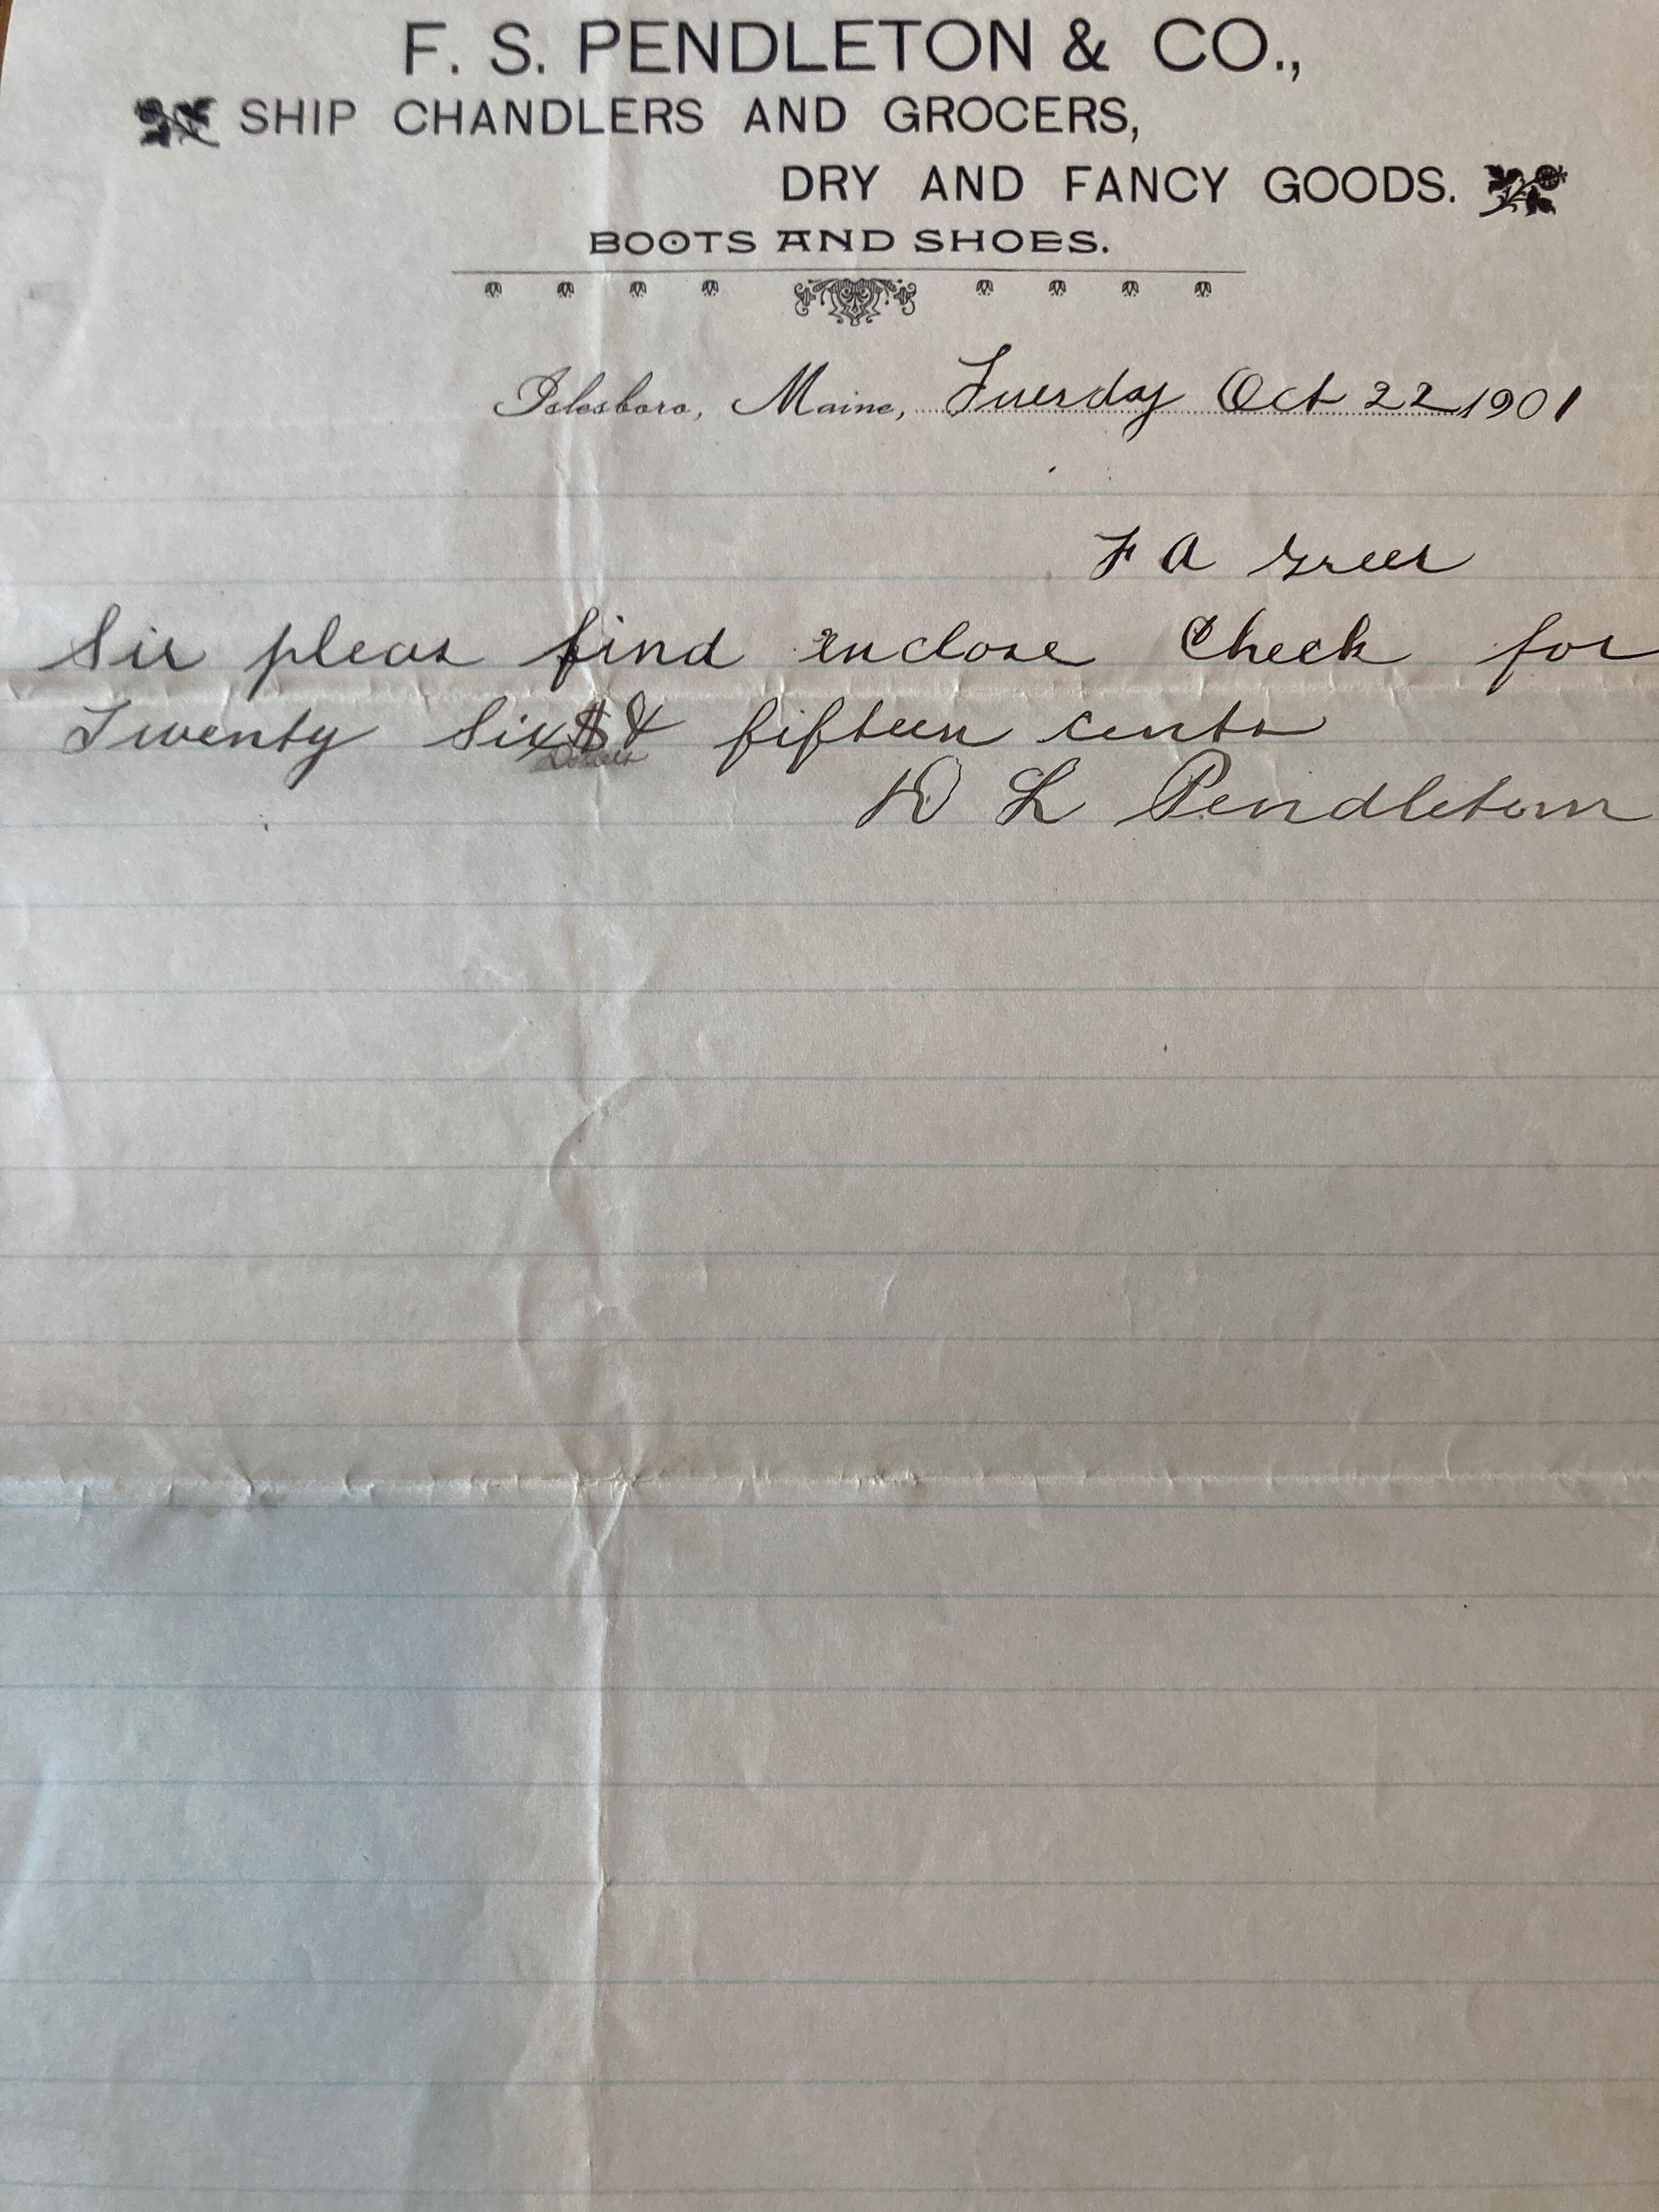 F. S. PENDLETON & CO.,
SHIP CHANDLERS AND GROCERS,
DRY AND FANCY GOODS.
BOOTS AND SHOES.
Islesboro, Maine, Tuesday Oct 22 1901
F A Greer
Sir pleas find enclose Check for
Twenty Six $ & fifteen cents
Dollars
D L Pendleton